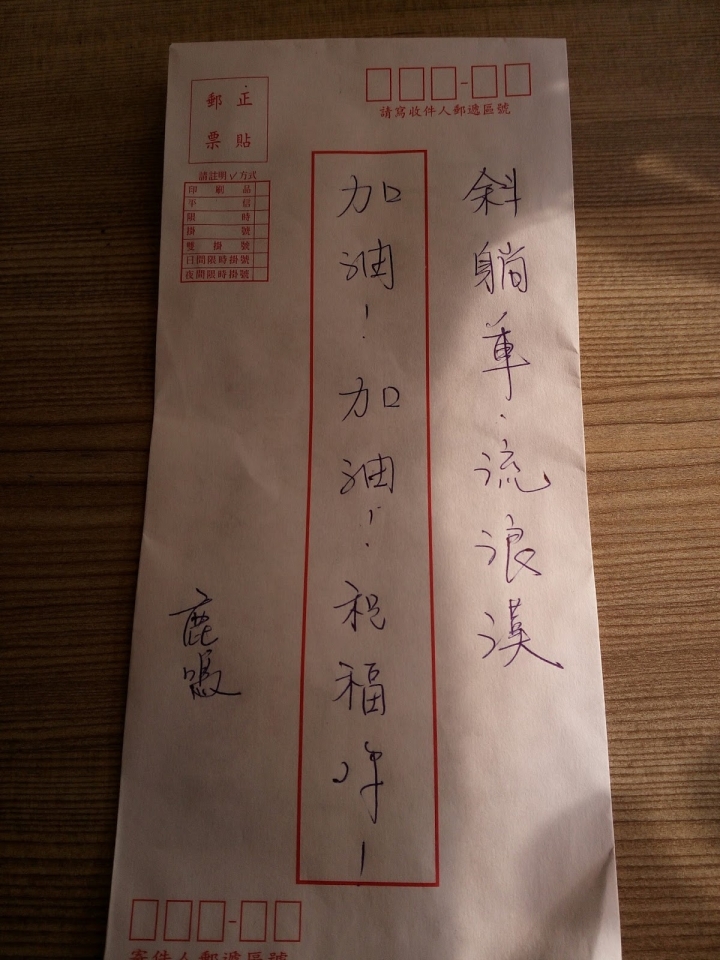 請寫收件人郵遞區號
正貼
郵票
請註明✓方式
印刷品
平信
限時
掛號
雙掛號
日間限時掛號
夜間限時掛號
斜躺單.流浪漢
加油!加油!祝福!
鹿
寄件人郵遞區號